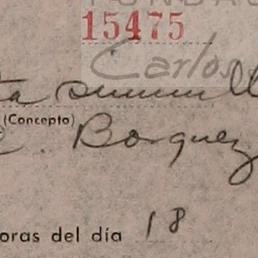 FUNDAC
15475
Carlos
(Concepto)
Bosquez
oras del día 18